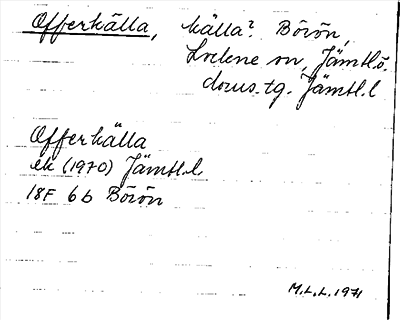 Offerkälla, källa? Börön,
Lockne sn, Jämtl.ö.
doms.tg. Jämtl.l
Offerkälla
ek (1970) Jämtl.l
18F 6b Börön
M.L.L. 1971